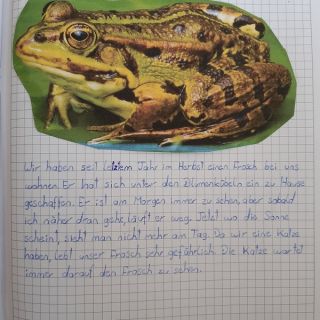 Wir haben seit letztem Jahr im Herbst einen Frosch bei uns
wohnen. Er hat sich unter den Blumenkübeln ein zu Hause
geschaffen. Er ist am Morgen immer zu sehen, aber sobald
ich näher dran gehe, läuft er weg. Jetzt wo die Sonne
scheint, sieht man nicht mehr am Tag. Da wir eine Katze
haben, lebt unser Frosch sehr gefährlich. Die Katze wartet
immer darauf den Frosch zu sehen.